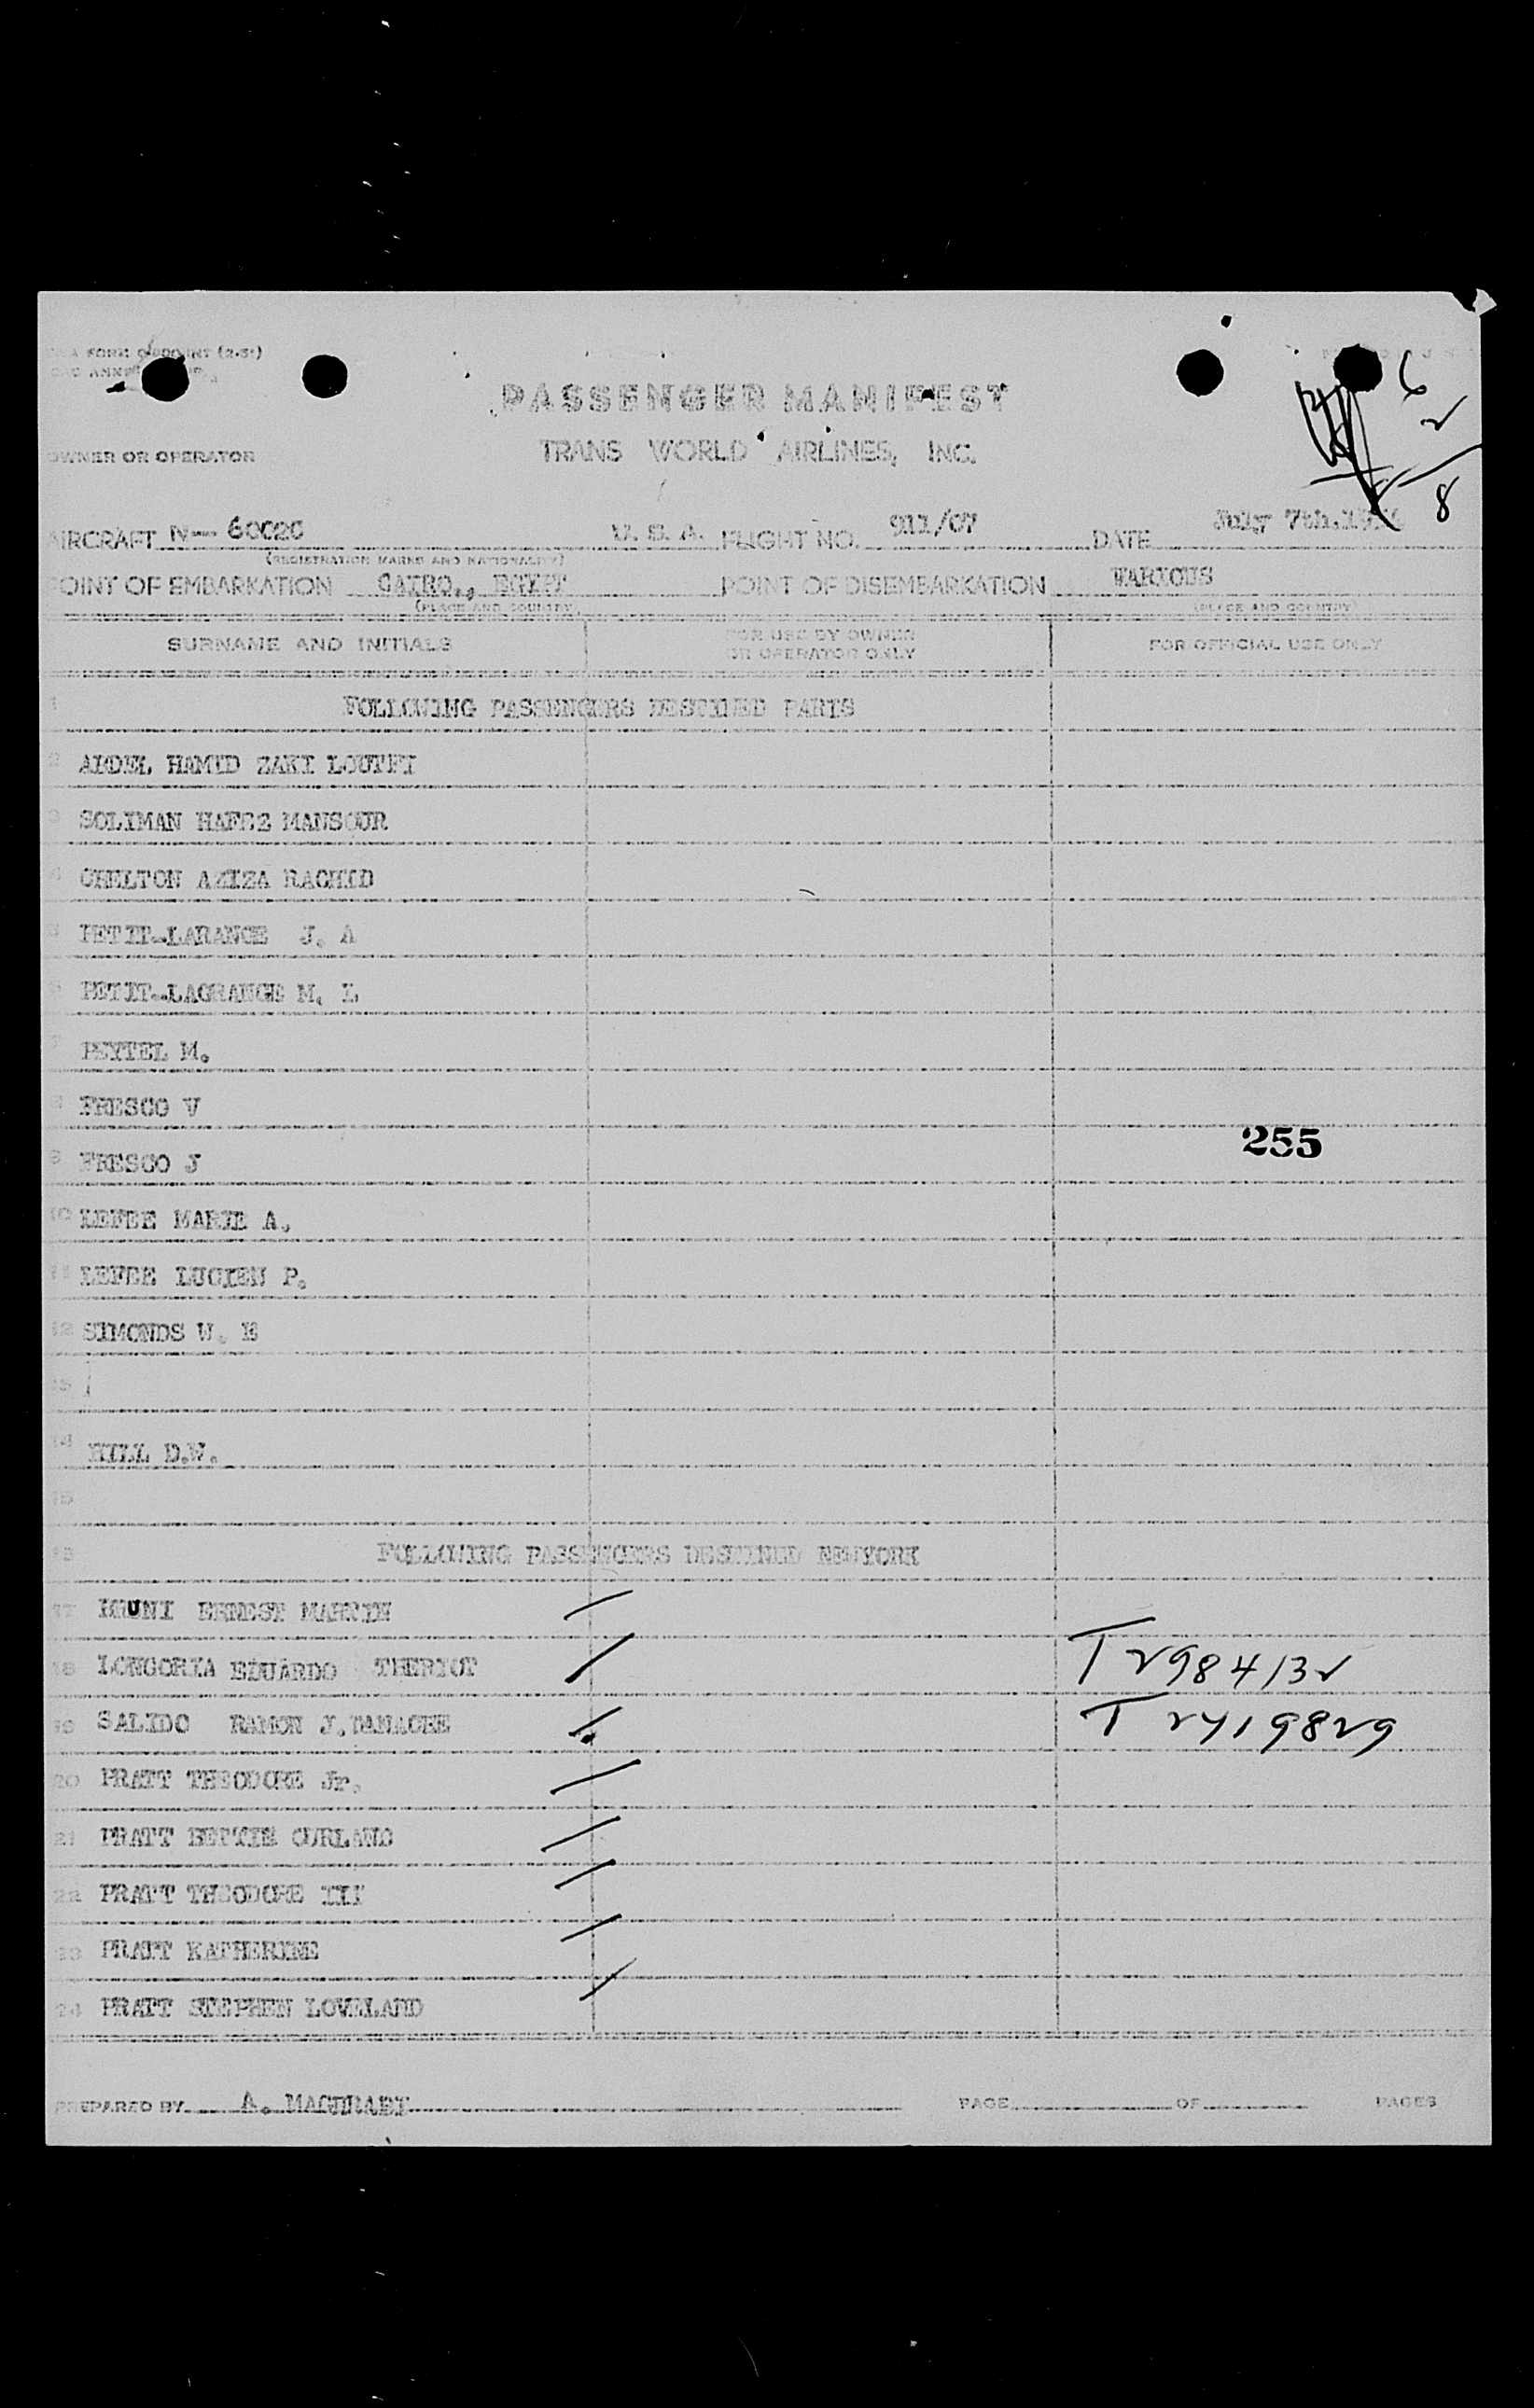 PASSENGER MANIFEST
OWNER OR OPERATOR TRANS WORLD AIRLINES, INC.
6
2
8
AIRCRAFT N-- 60026 U. S. A. FLIGHT NO. 911/07 DATE July 7th,
(REGISTRATION MARKS AND NATIONALITY)
POINT OF EMBARKATION CAIRO., EGYPT POINT OF DISEMBARKATION VARIOUS
(PLACE AND COUNTRY) (PLACE AND COUNTRY)
SURNAME AND INITIALS FOR USE BY OWNER OR OPERATOR ONLY FOR OFFICIAL USE ONLY
1 FOLLOWING PASSENGERS DESTINED PARIS
2 ABDEL HAMID ZAKI LOUTFI
3 SOLIMAN HAFEZ MANSOUR
4 CHELTON AZIZA RACHID
5 PETIT--LARANGE J. A
6 PETIT--LAGRANGE M. L
7 PEYTEL M.
8 FRESCO V
255
9 FRESCO J
10 LEFEE MARIE A.
11 LEFEE LUCIEN P.
12 SIMONDS W. E
13
14 HILL D.W.
15
16 FOLLOWING PASSENGERS DESTINED NEWYORK
17 ERNEST MARTIN
18 LONGORIA EDUARDO THERIOT T 2984132
19 SALIDO RAMON J. T 2419829
20 PRATT THEODORE Jr.
21 PRATT BETTIE
22 PRATT THEODORE III
23 PRATT KATHERINE
24 PRATT STEPHEN LOVELAND
PREPARED BY A. PAGE OF PAGES